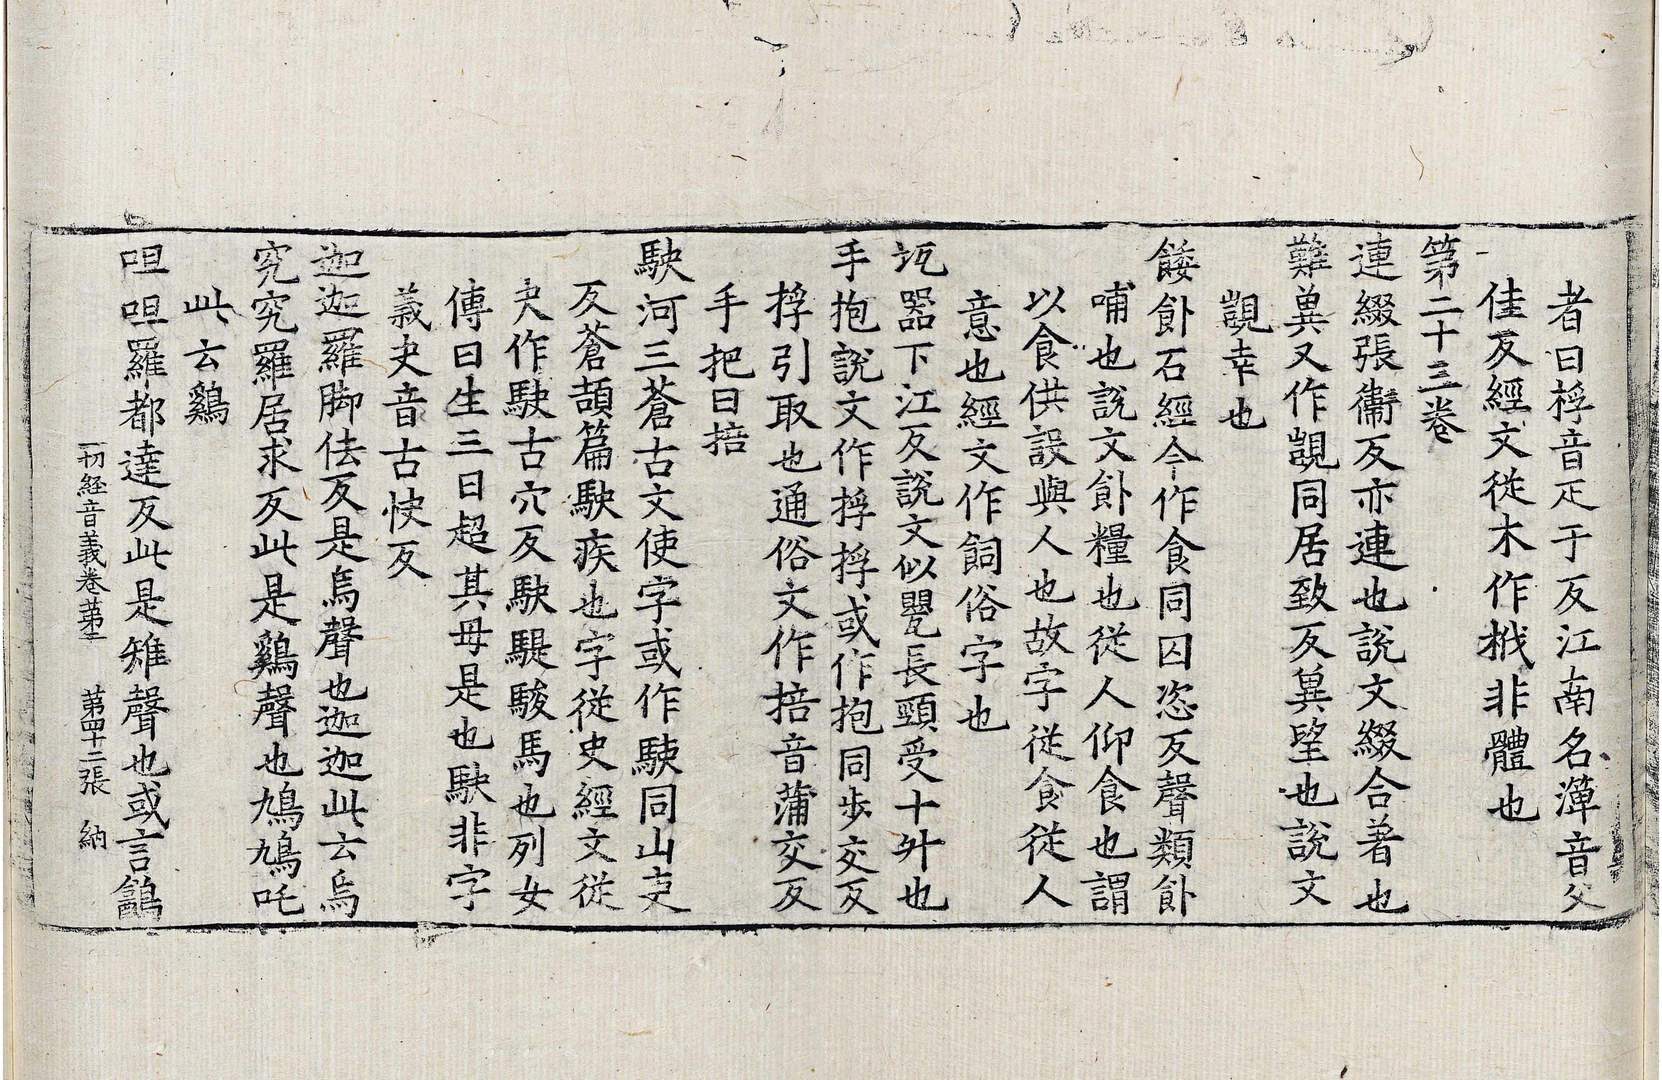 者曰桴音疋于反江南名𥴖音父
佳反經文從木作栰非體也
第二十三卷
連綴張衞反亦連也說文綴合著也
難兾又作覬同居致反兾望也說文
覬幸也
餧飤石經今作食同囚恣反聲類飤
哺也說文飤糧也從人仰食也謂
以食供設與人也故字從食從人
意也經文作飼俗字也
瓨器下江反說文似甖長頸受十升也
手抱說文作捊捊或作抱同步交反
捊引取也通俗文作掊音蒲交反
手把曰掊
駛河三蒼古文使字或作駛同山吏
反蒼頡篇駛疾也字從史經文從
夬作駃古穴反駃騠駿馬也列女
傳曰生三日超其母是也駃非字
義史音古快反
迦迦羅脚佉反是烏聲也迦迦此云烏
究究羅居求反此是鷄聲也鳩鳩吒
此云鷄
呾呾羅都達反此是雉聲也或言鷂
一切經音義卷第二 第四十二張 納